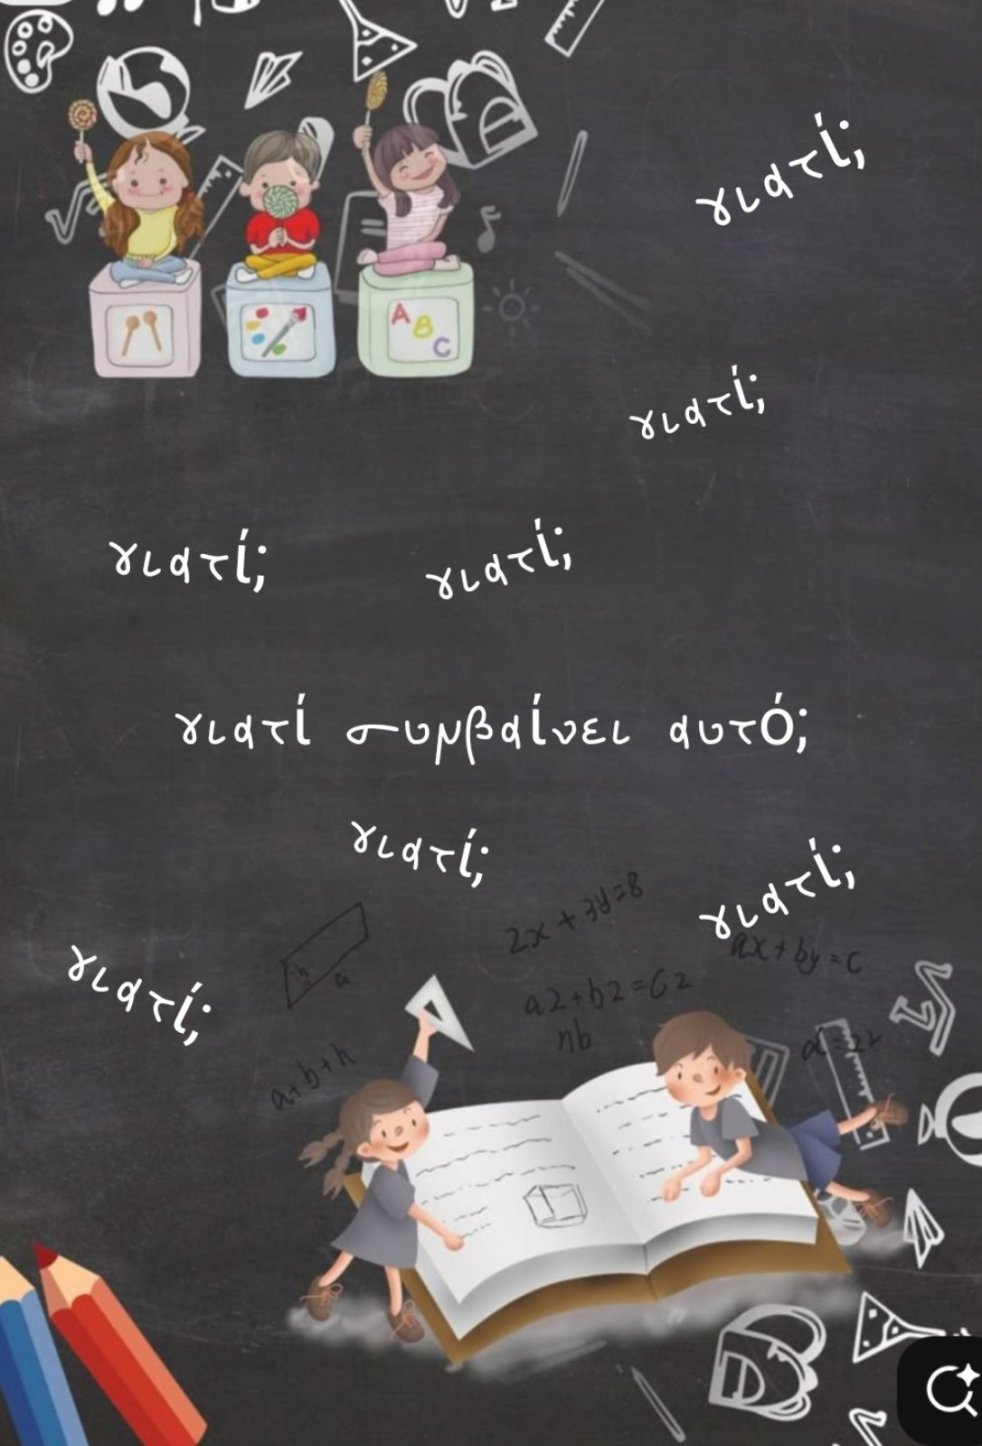 γιατί;
A
B
C
γιατί;
γιατί; γιατί;
γιατί συμβαίνει αυτό;
γιατί;
γιατί;
2x + 3y=8
ax + by = c
γιατί;
a2+b2=c2
nb
h
a
a+b+h